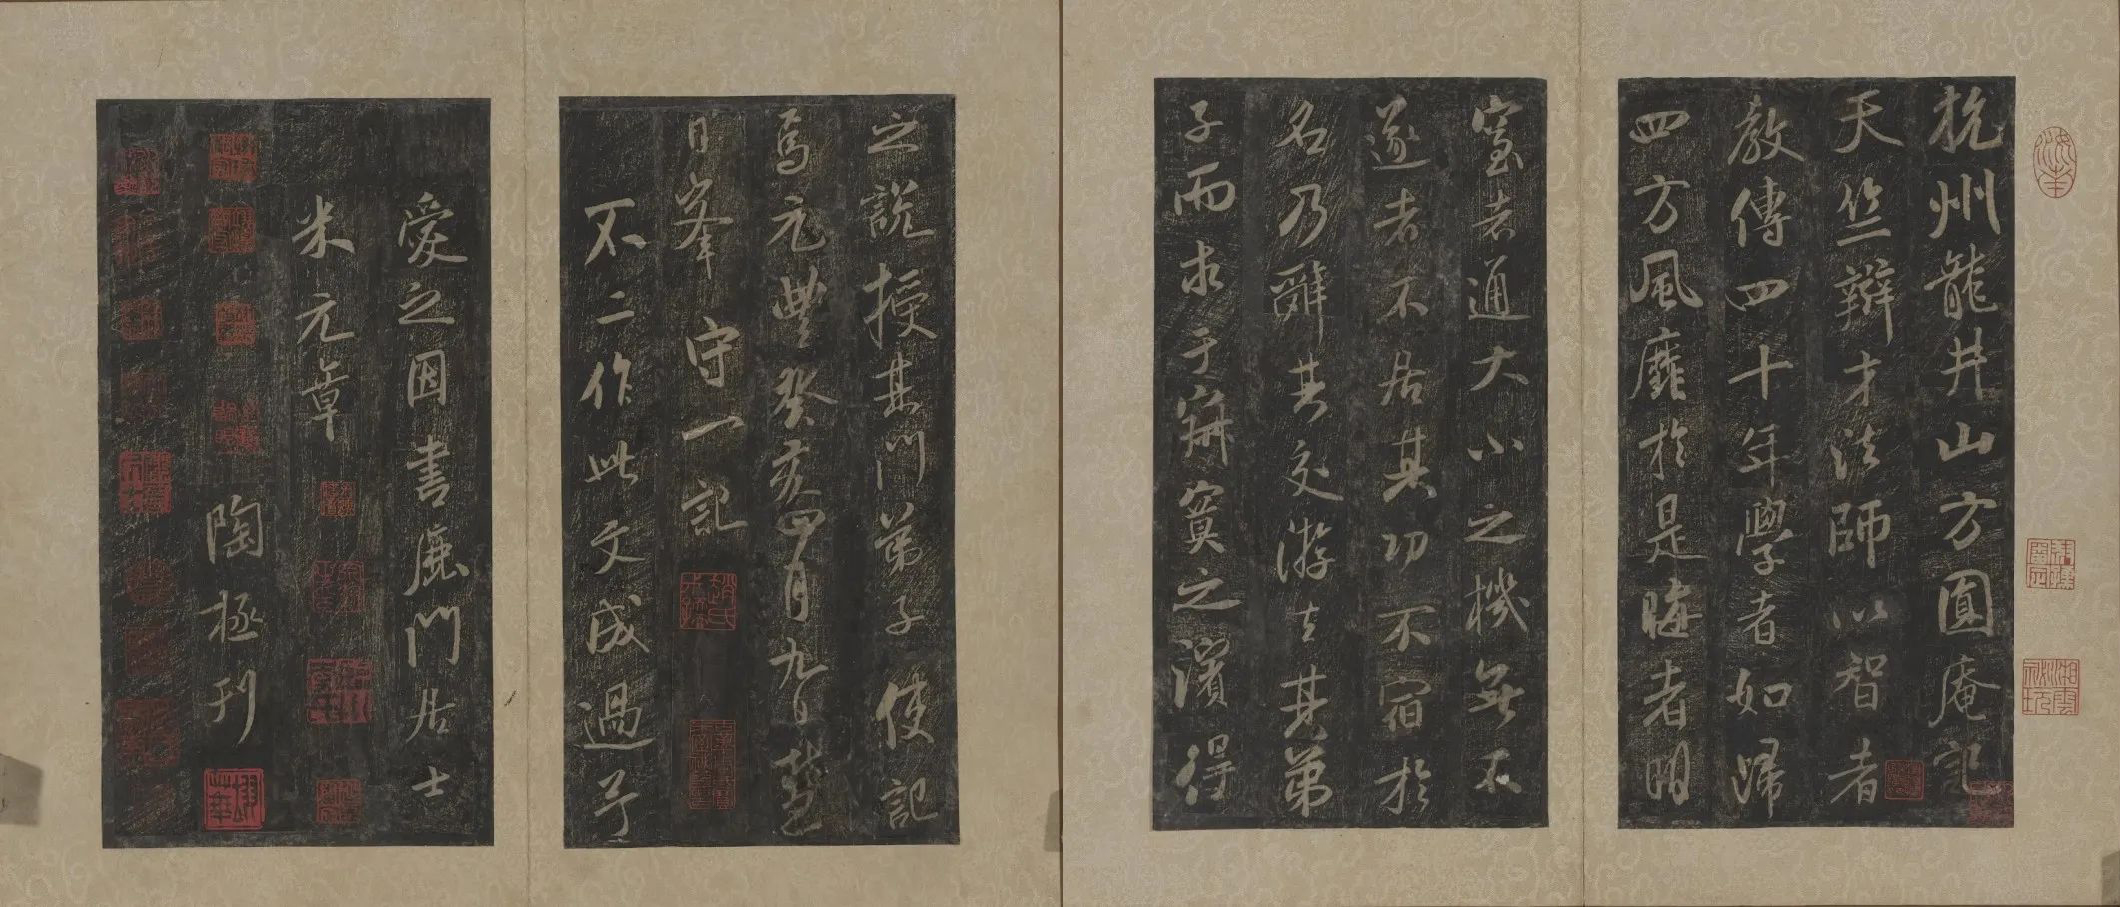 杭州龍井山方圓庵記
天竺辯才法師以智者
教傳四十年學者如歸
四方風靡於是晦者明
窒者通大小之機無不
遂者不居其功不宿於
名乃辭其交游去其弟
子而求于寂寞之濱得
之說授其門弟子使記
焉元豐癸亥四月九日慧
日峯守一記
不二作此文成過予
愛之因書鹿門居士
米元章
陶拯刊